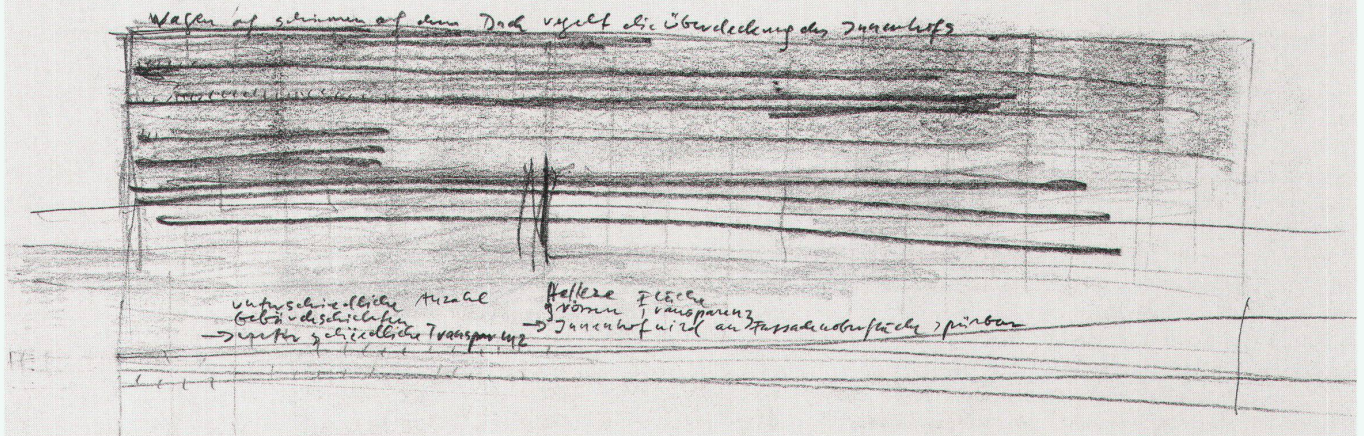 auf dem Dach regelt die Überdeckung des Innenhofs
unterschiedliche Anzahl
Gebäudeschichten
→ unterschiedliche Transparenz
Hellere Fläche
grössere Transparenz
→ Innenhof wird an Fassadenoberfläche spürbar